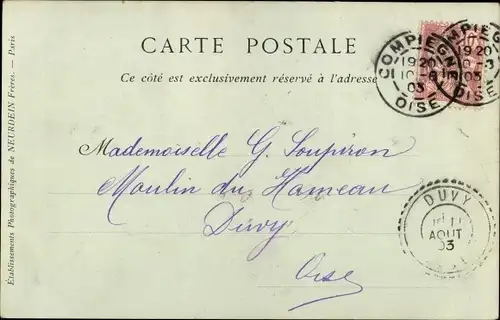 CARTE POSTALE
Ce côté est exclusivement réservé à l'adresse
COMPIEGNE
19 20
10 -8
03
OISE
COMPIEGNE
19 20
10 -8
03
OISE
Mademoiselle G. Soupiron
Moulin du Hameau
Duvy
Oise
DUVY
11
AOUT
03
Établissements Photographiques de NEURDEIN Frères. — Paris